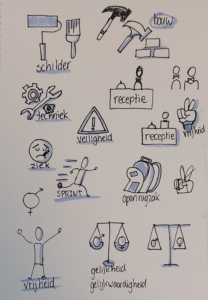 bouw
schilder
receptie
techniek
veiligheid
receptie
vrijheid
ziek
SPRINT
open rugzak
vrijheid
gelijkheid
gelijkwaardigheid